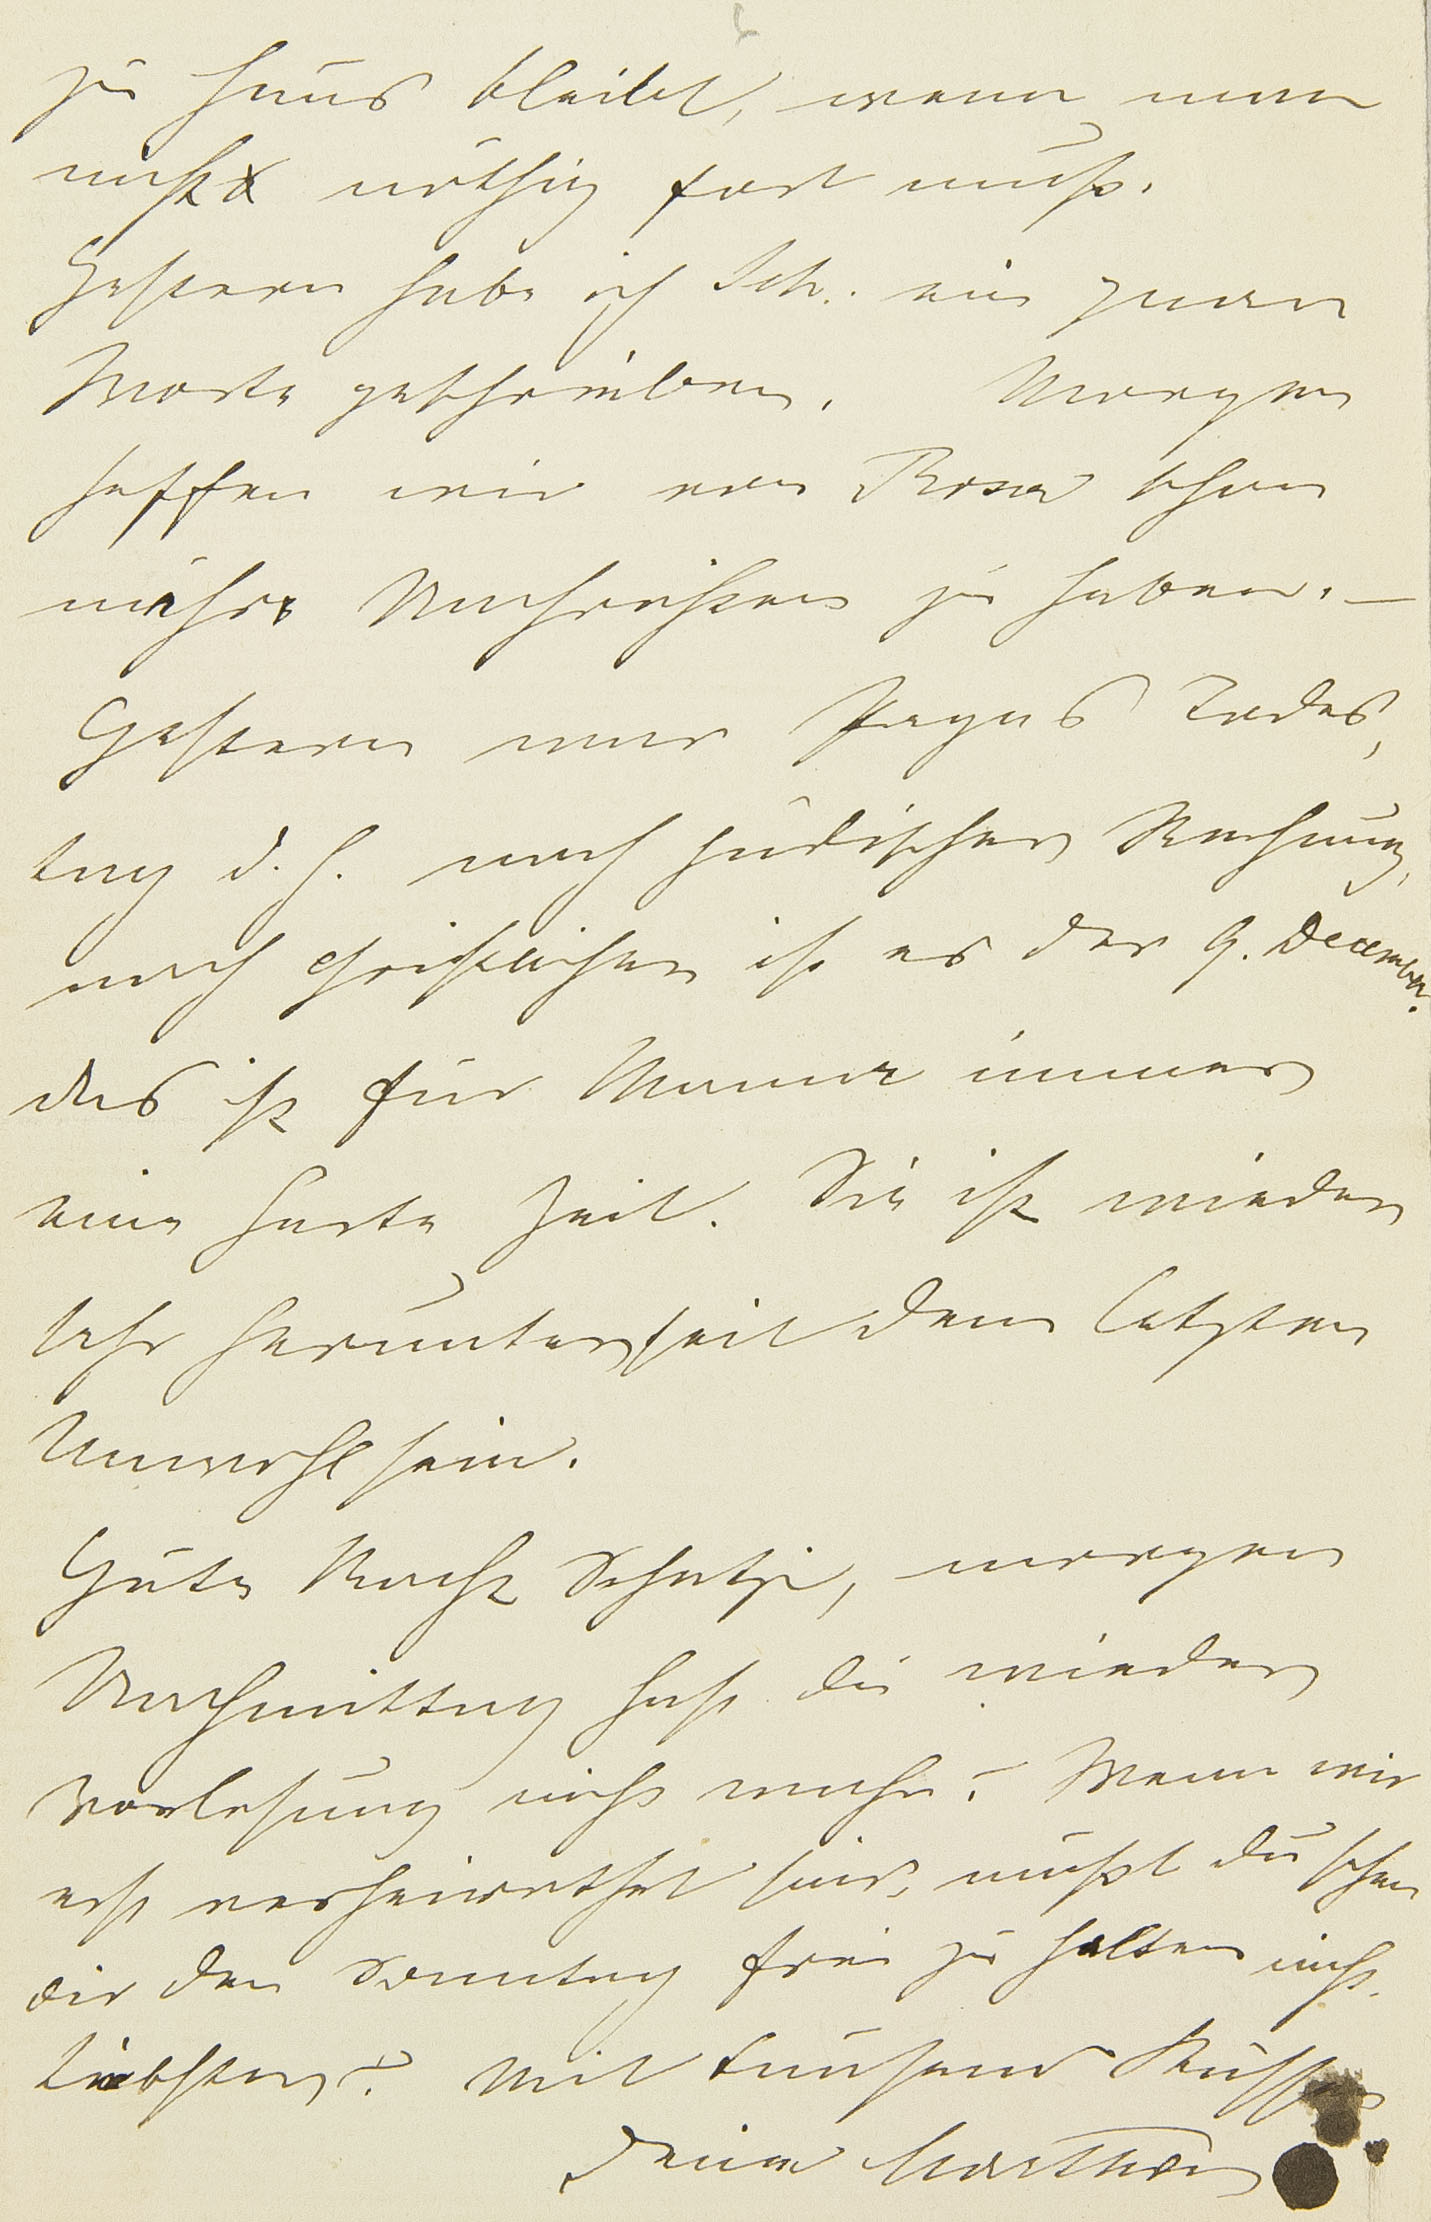 zu Haus bleibt, wenn man
nicht nöthig fort muß.
Gestern habe ich Sch. ein paar
Worte geschrieben. Morgen
hoffen wir von Rosa schon
nähre Nachrichten zu haben. –
Gestern war Papas Todes,
tag d. h. nach jüdischer Rechnung,
nach christlicher ist es der 9. December.
das ist für Mama immer
eine harte Zeit. Sie ist wieder
sehr herunter seit dem letzten
Unwohlsein.
Gute Nacht Schatzi, morgen
Nachmittag hast du wieder
Vorlesung nicht wahr? Wenn wir
erst verheirathet sind, mußt du schon
dir den Sonntag frei zu halten nicht
Liebster? Mit tausend Küssen
deine Martha